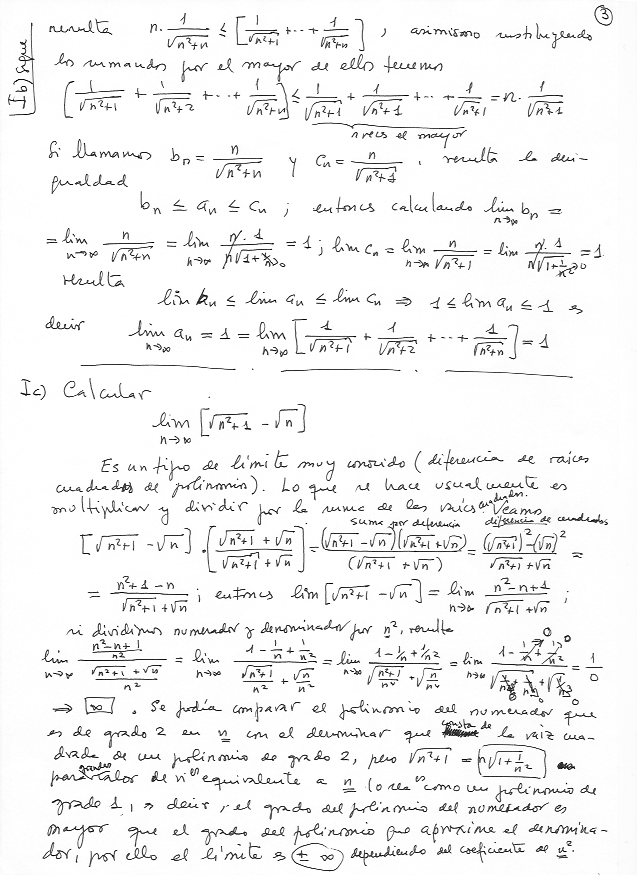 3
Ib) Sigue
resulta n·1/√(n²+n) ≤ [1/√(n²+1) + ··· + 1/√(n²+n)], asimismo sustituyendo
los sumandos por el mayor de ellos tenemos
[1/√(n²+1) + 1/√(n²+2) + ··· + 1/√(n²+n)] ≤ 1/√(n²+1) + 1/√(n²+1) + ··· + 1/√(n²+1) = n·1/√(n²+1)
n veces el mayor
Si llamamos bₙ = n/√(n²+n) y cₙ = n/√(n²+1), resulta la desi-
gualdad
bₙ ≤ aₙ ≤ cₙ ; entonces calculando lim n→∞ bₙ =
= lim n→∞ n/√(n²+n) = lim n→∞ n·1/n√(1+1/n)→0 = 1 ; lim cₙ = lim n→∞ n/√(n²+1) = lim n·1/n√(1+1/n²)→0 = 1
resulta
lim bₙ ≤ lim aₙ ≤ lim cₙ ⇒ 1 ≤ lim aₙ ≤ 1 es
decir lim n→∞ aₙ = 1 = lim n→∞ [1/√(n²+1) + 1/√(n²+2) + ··· + 1/√(n²+n)] = 1
Ic) Calcular
lim n→∞ [√(n²+1) - √n]
Es un tipo de límite muy conocido (diferencia de raíces
cuadradas de polinomios). Lo que se hace usualmente es
multiplicar y dividir por la suma de las raíces cuadradas. Veamos
suma por diferencia diferencia de cuadrados
[√(n²+1) - √n]·[(√(n²+1) + √n)/(√(n²+1) + √n)] = (√(n²+1) - √n)(√(n²+1) + √n)/(√(n²+1) + √n) = ((√(n²+1))² - (√n)²)/(√(n²+1) + √n) =
= (n²+1-n)/(√(n²+1) + √n) ; entonces lim [√(n²+1) - √n] = lim n→∞ (n²-n+1)/(√(n²+1) + √n) ;
si dividimos numerador y denominador por n², resulta
lim n→∞ ((n²-n+1)/n²)/((√(n²+1) + √n)/n²) = lim n→∞ (1 - 1/n + 1/n²)/(√(n²+1)/n² + √n/n²) = lim n→∞ (1 - 1/n + 1/n²)/(√((n²+1)/n⁴) + √(n/n⁴)) = lim n→∞ (1 - 1/n→0 + 1/n²→0)/(√(1/n²→0 + 1/n⁴→0) + √(1/n³→0)) = 1/0
⇒ ∞. Se podía comparar el polinomio del numerador que
es de grado 2 en n con el denominar que consta de la raiz cua-
drada de un polinomio de grado 2, pero √(n²+1) = n√(1+1/n²)
para grandes valor de "n" es equivalente a n (o sea "como un polinomio de
grado 1, es decir, el grado del polinomio del numerador es
mayor que el grado del polinomio que aproxime el denomina-
dor, por ello el límite es ± ∞ dependiendo del coeficiente de n².